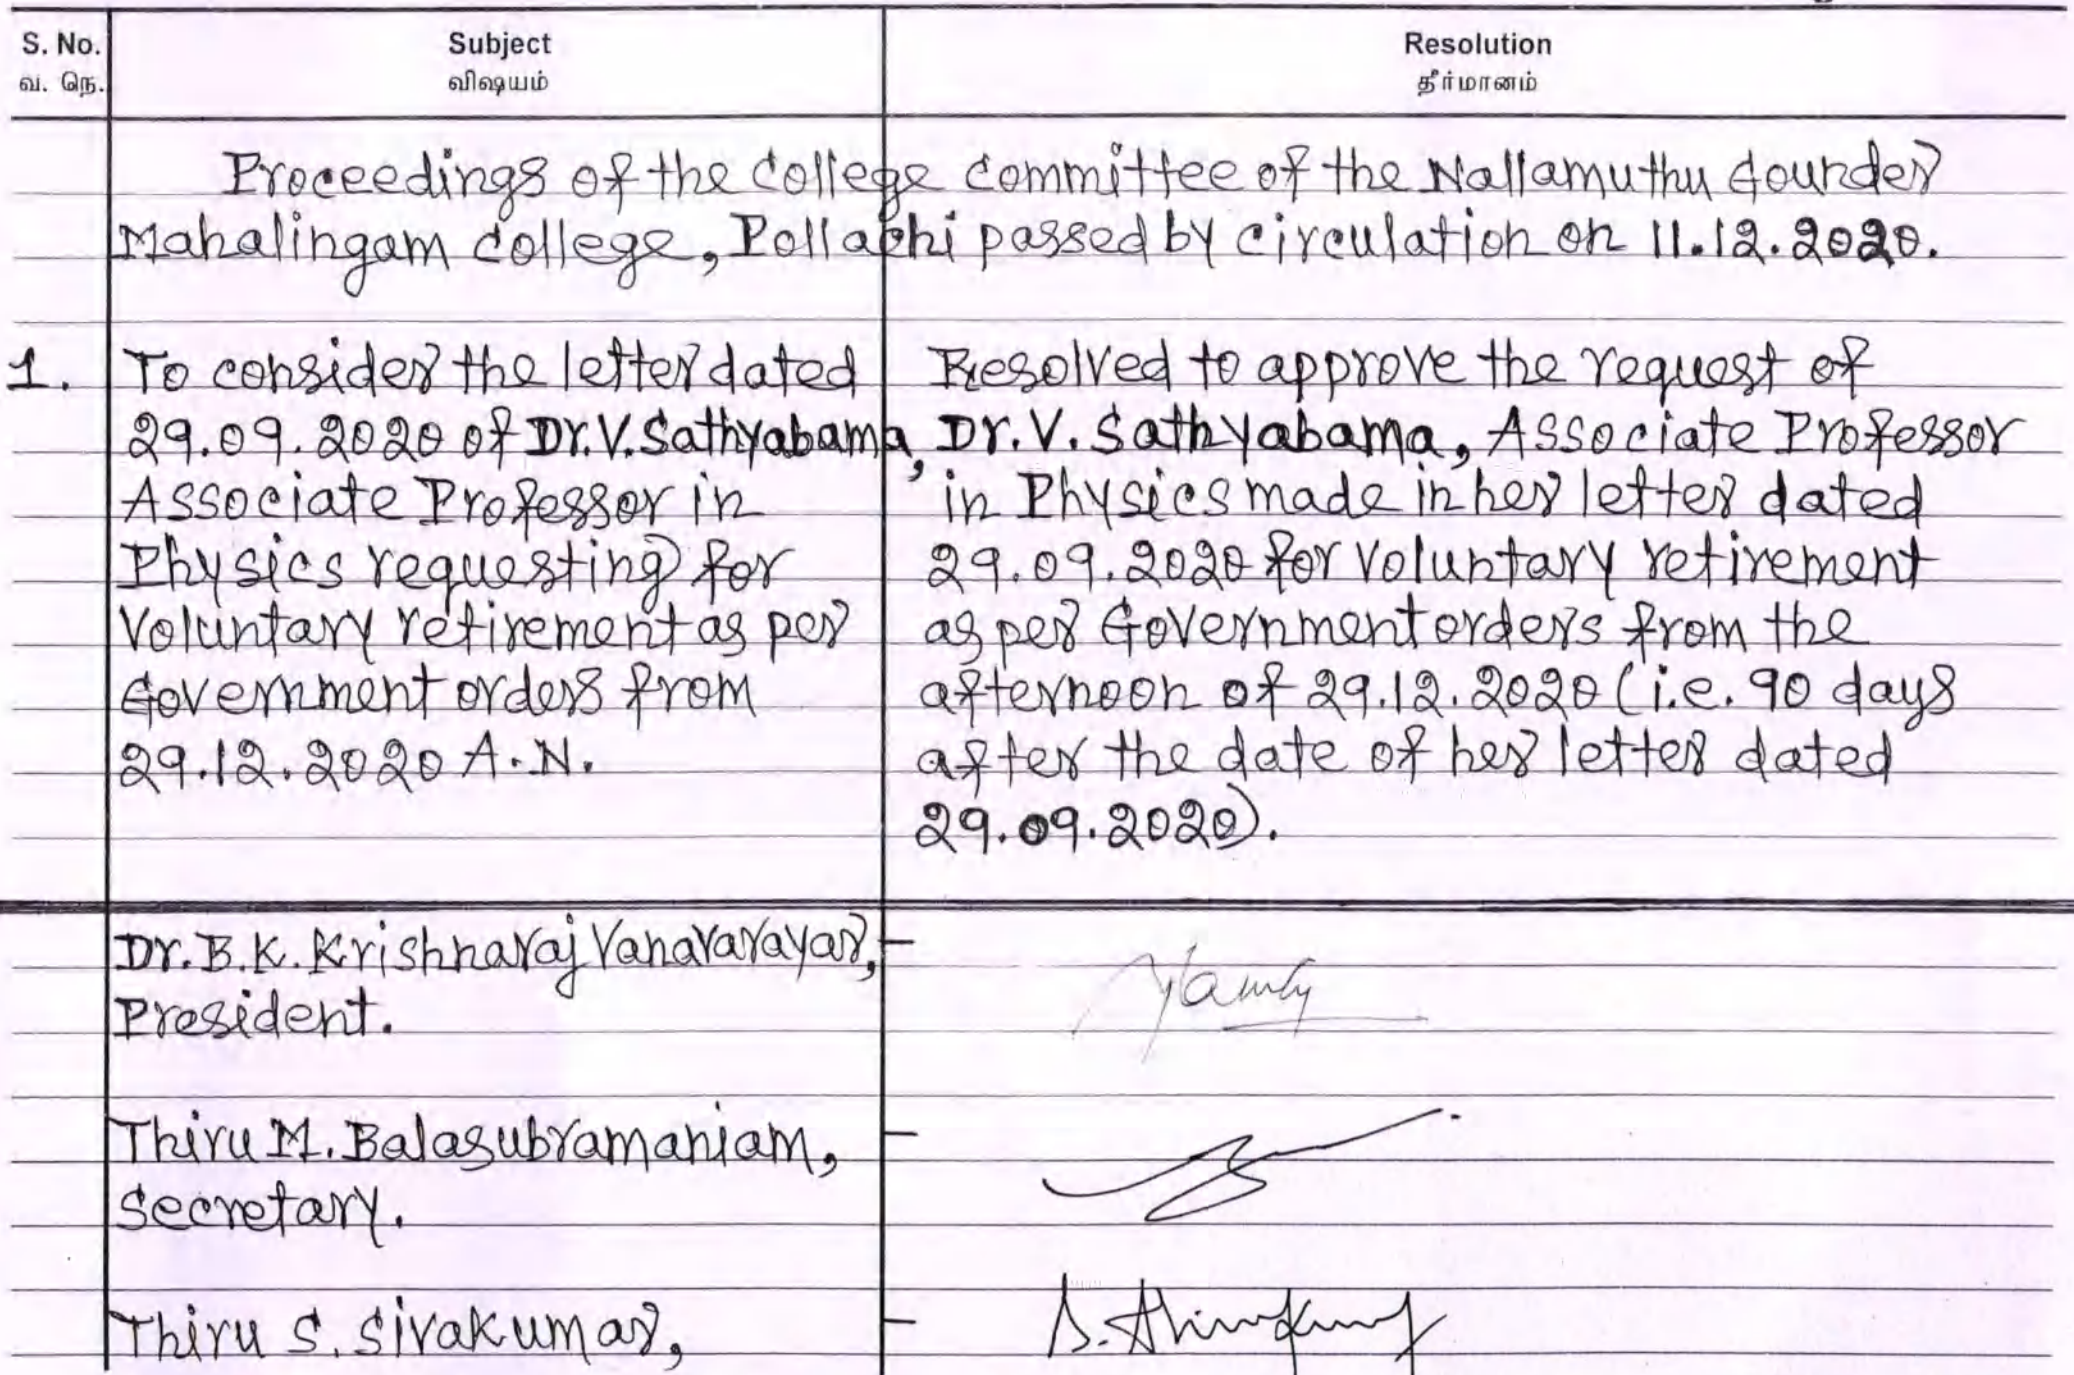 S. No. Subject Resolution
வ. நெ. விஷயம் தீர்மானம்
Proceedings of the College Committee of the Nallamuthu Gounder
Mahalingam College, Pollachi passed by circulation on 11.12.2020.
1. To consider the letter dated
29.09.2020 of Dr.V.Sathyabama,
Associate Professor in
Physics requesting for
Voluntary retirement as per
Government orders from
29.12.2020 A.N.
Resolved to approve the request of
Dr. V. Sathyabama, Associate Professor
in Physics made in her letter dated
29.09.2020 for Voluntary retirement
as per Government orders from the
afternoon of 29.12.2020 (i.e. 90 days
after the date of her letter dated
29.09.2020).
Dr. B.K. Krishnaraj Vanavarayar, -
President.
Thiru M. Balasubramaniam, -
Secretary.
Thiru S. Sivakumar, -